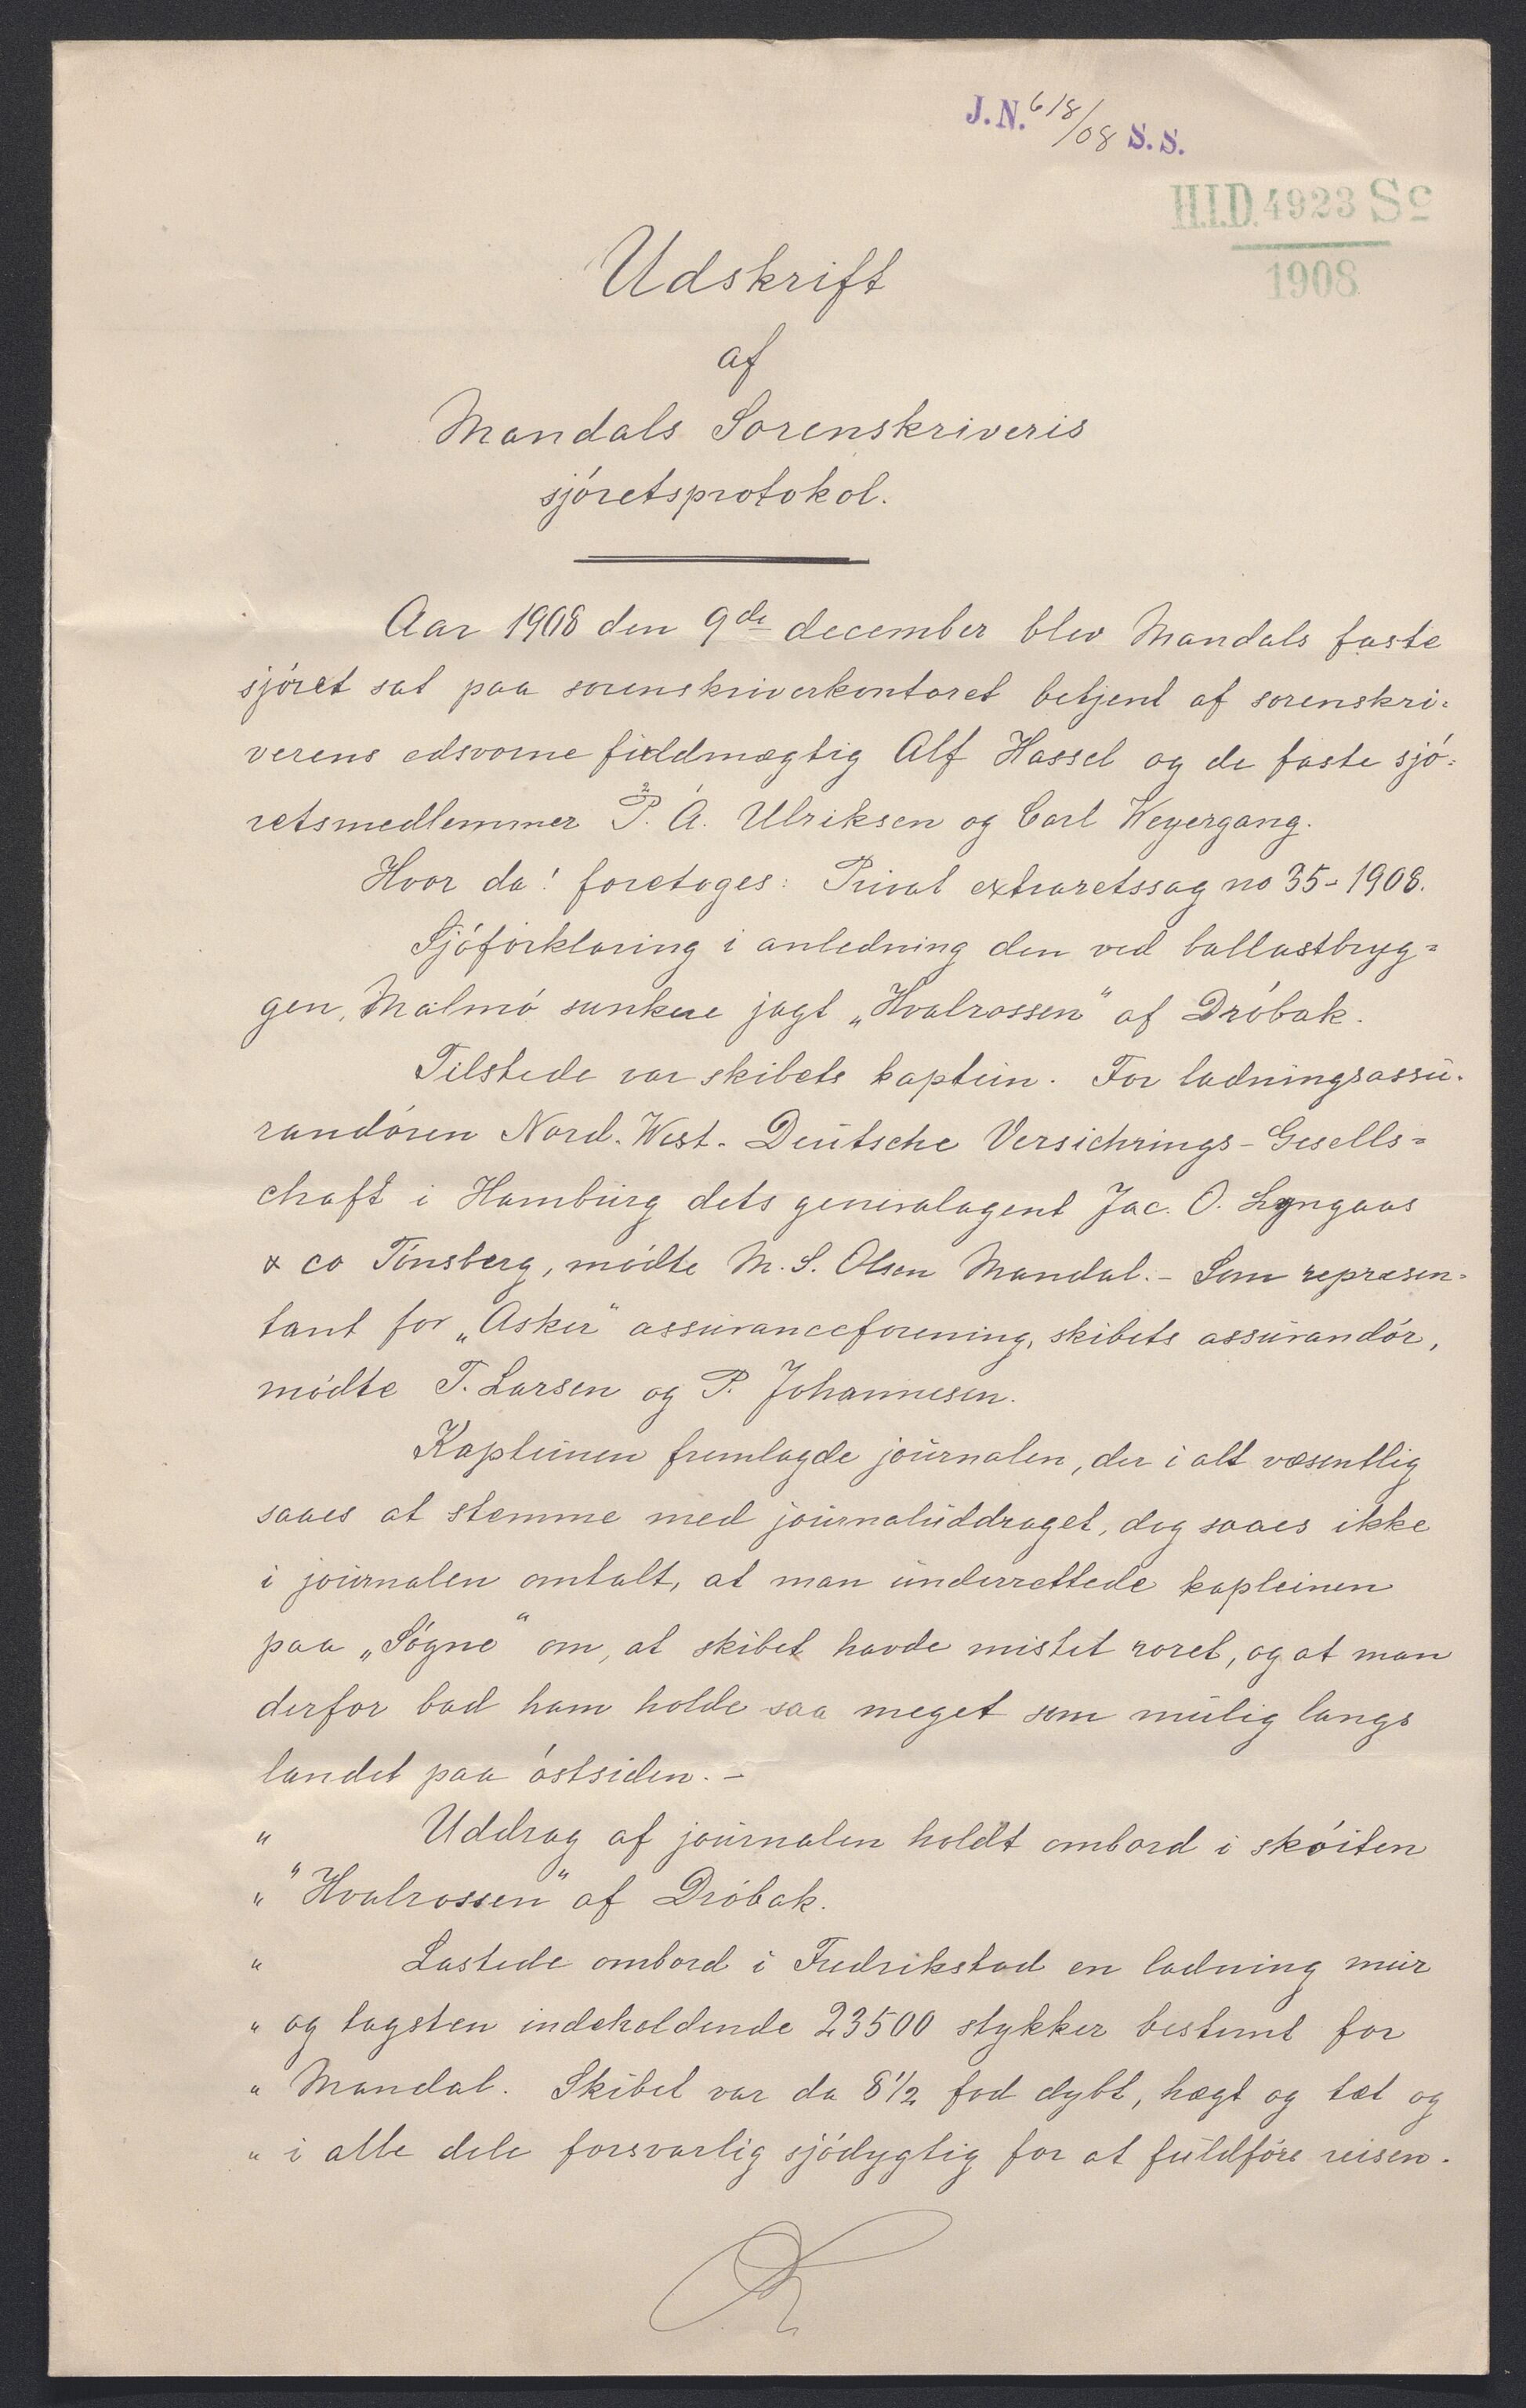 J.N. 618/08 S.S.
H.I.D. 4923 Sc
1908
Udskrift
af
Mandals Sorenskriveris
sjöretsprotokol.
Aar 1908 den 9de december blev Mandals faste
sjöret sat paa sorenskriverkontoret betjent af sorenskri=
verens edsvorne fuldmægtig Alf Hassel og de faste sjö=
retsmedlemmer P. A. Ulriksen og Carl Weyergang.
Hvor da! foretoges: Privat extraretssag no 35-1908.
Sjöforklaring i anledning den ved ballastbryg=
gen, Malmö sunkne jagt „Hvalrossen" af Dröbak.
Tilstede var skibets kaptein. For ladningsassu=
randören Nord-West-Deutsche Versichrings-Gesells=
chaft i Hamburg dets generalagent Jac. O. Lyngaas
& co Tönsberg, mödte M. S. Olsen Mandal. - Som repræsen=
tant for „Asker" assuranceforening, skibets assurandör,
mödte T. Larsen og P. Johannesen.
Kapteinen fremlagde journalen, der i alt væsentlig
saaes at stemme med journaluddraget, dog saaes ikke
i journalen omtalt, at man underrettede kapteinen
paa „Sögne" om, at skibet havde mistet roret, og at man
derfor bad ham holde saa meget som mulig langs
landet paa östsiden. -
" Uddrag af journalen holdt ombord i sköiten
" "Hvalrossen" af Dröbak.
" Lastede ombord i Fredrikstad en ladning mur
" og tagsten indeholdende 23500 stykker bestemt for
" Mandal. Skibet var da 8 1/2 fod dybt, hægt og tæt og
" i alle dele forsvarlig sjödygtig for at fuldföre reisen.